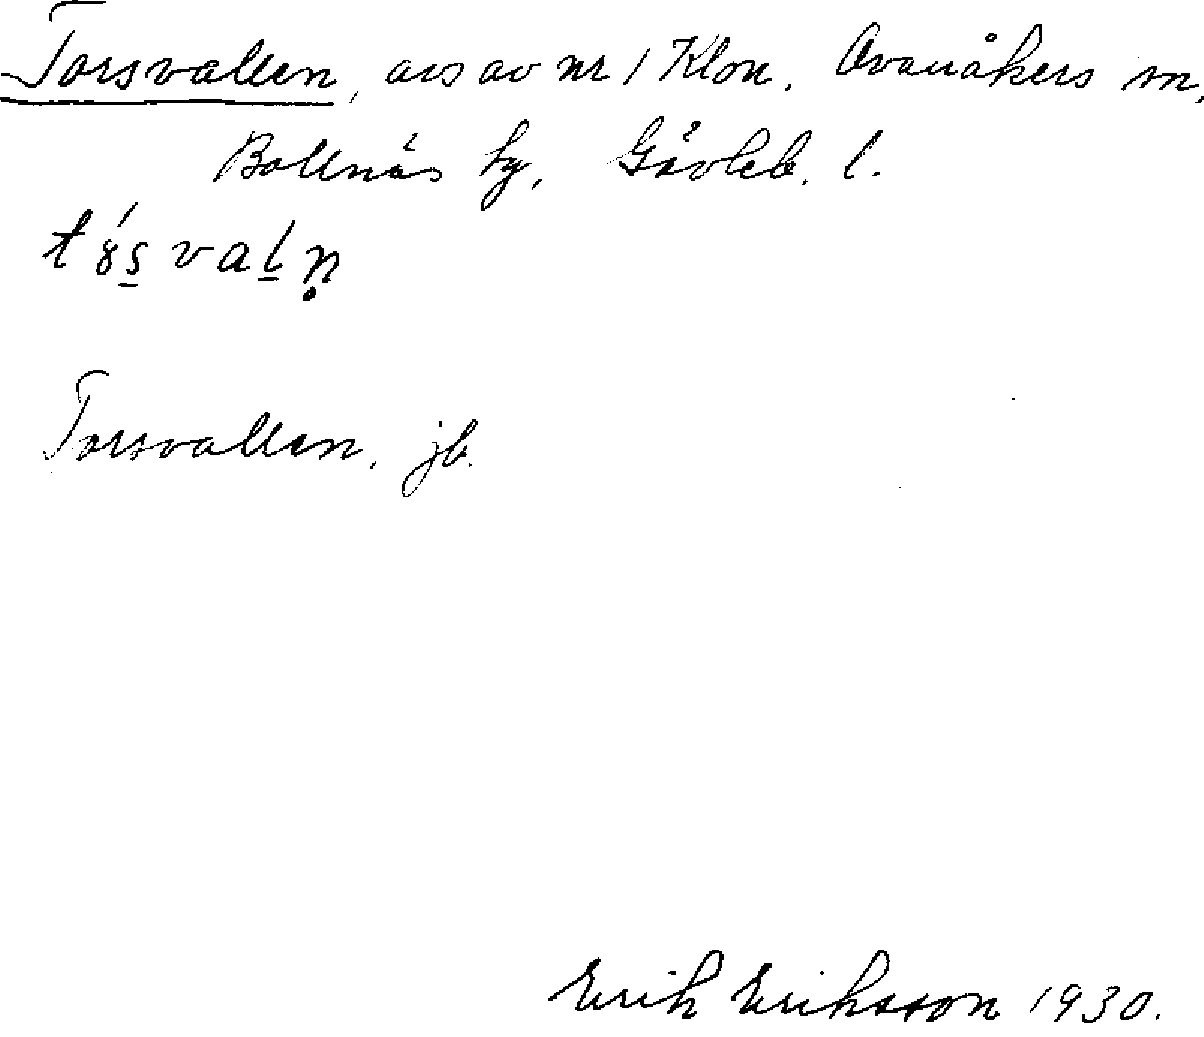 Torsvallen, avs av nr 1 Klon. Ovanåkers sn,
Bollnäs hg, Gävleb. l.
tɣ́s̲val̲ṇ
Torsvallen, jb.
Erik Eriksson 1930.